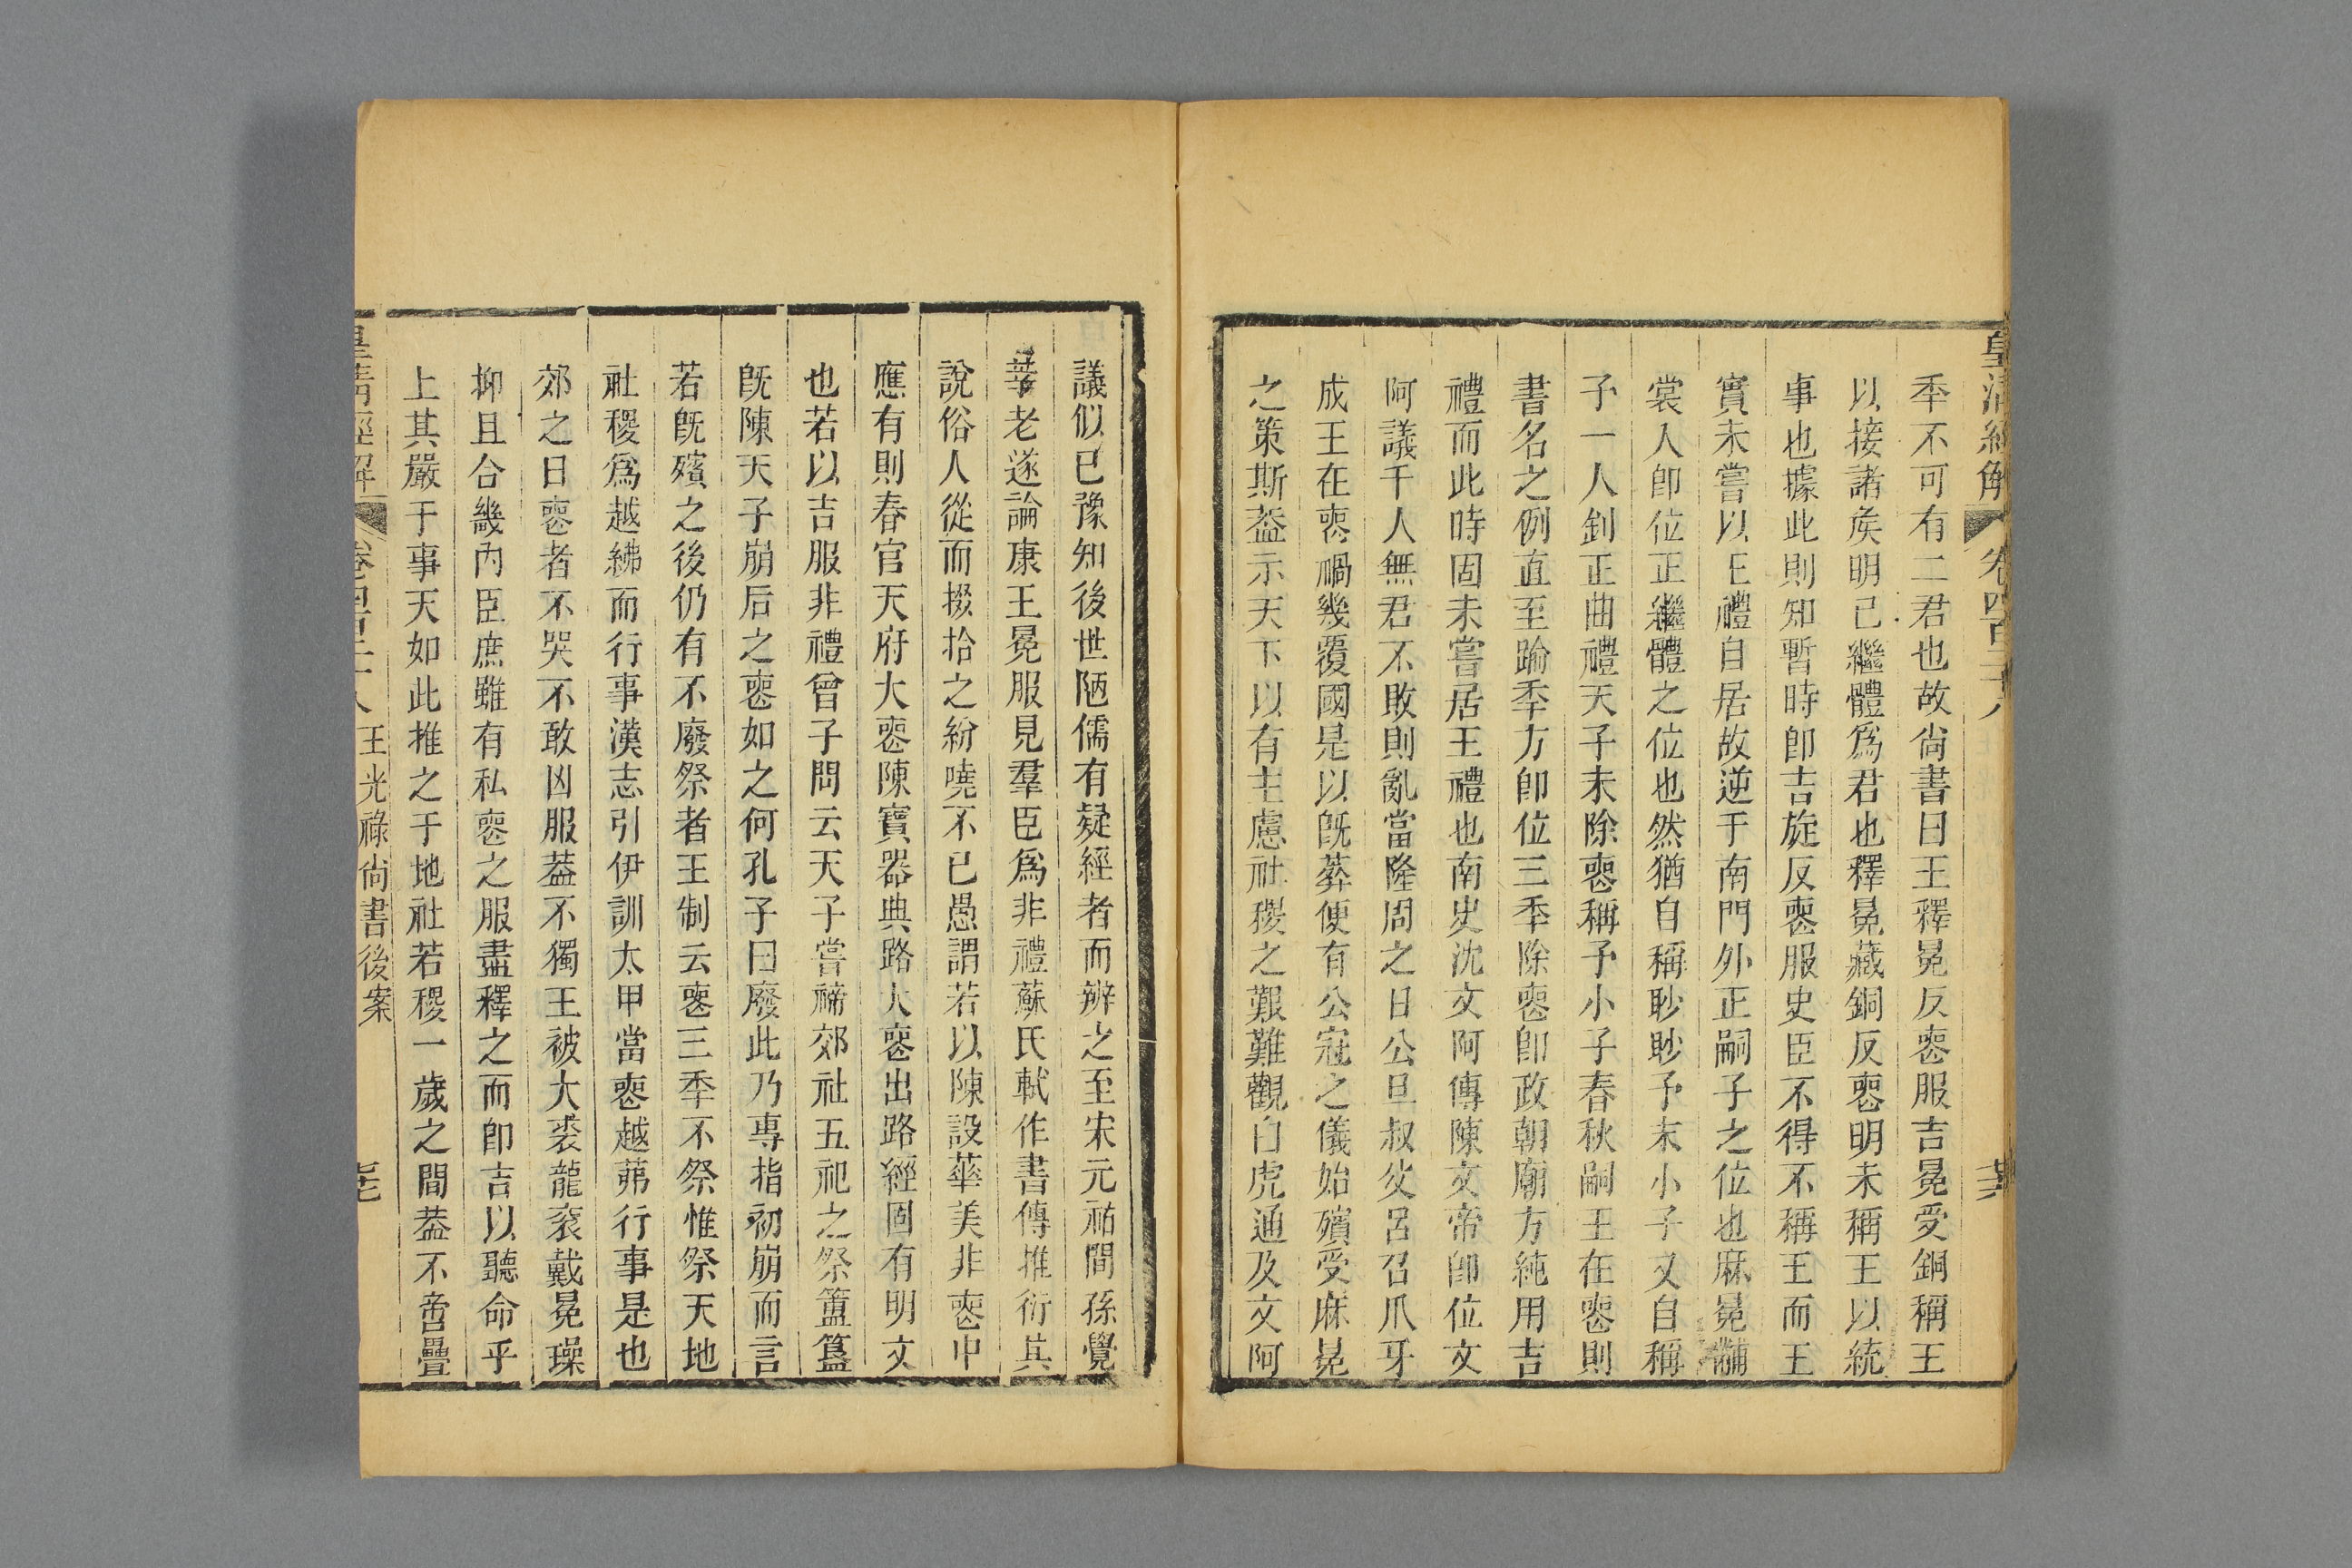 皇清經解 卷四百二十八 共
秊不可有二君也故尙書曰王釋冕反䘮服吉冕受銅稱王
以接諸矦明已繼體爲君也釋冕藏銅反䘮明未稱王以統
事也據此則知暫時卽吉旋反䘮服史臣不得不稱王而王
實未嘗以王禮自居故逆于南門外正嗣子之位也麻冕黼
裳入卽位正繼體之位也然猶自稱眇眇予末小子又自稱
予一人釗正曲禮天子未除䘮稱予小子春秋嗣王在䘮則
書名之例直至踰秊方卽位三秊除䘮卽政朝廟方純用吉
禮而此時固未嘗居王禮也南史沈文阿傳陳文帝卽位文
阿議千人無君不敗則亂當隆周之日公旦叔父呂召爪牙
成王在䘮禍幾覆國是以旣葬便有公冠之儀始殯受麻冕
之策斯葢示天下以有主慮社稷之艱難觀白虎通及文阿
議似已豫知後世陋儒有疑經者而辨之至宋元祐間孫覺
莘老遂論康王冕服見羣臣爲非禮蘇氏軾作書傳推衍其
說俗人從而掇拾之紛嘵不已愚謂若以陳設華美非䘮中
應有則春官天府大䘮陳寶器典路大䘮出路經固有明文
也若以吉服非禮曾子問云天子嘗禘郊社五祀之祭簠簋
旣陳天子崩后之䘮如之何孔子曰廢此乃專指初崩而言
若旣殯之後仍有不廢祭者王制云䘮三秊不祭惟祭天地
社稷爲越紼而行事漢志引伊訓太甲當䘮越茀行事是也
郊之日䘮者不哭不敢凶服葢不獨王被大裘龍袞戴冕璪
抑且合畿內臣庶雖有私䘮之服盡釋之而卽吉以聽命乎
上其嚴于事天如此推之于地社若稷一歲之間葢不啻疊
皇清經解 卷四百二十八 王光祿尙書後案